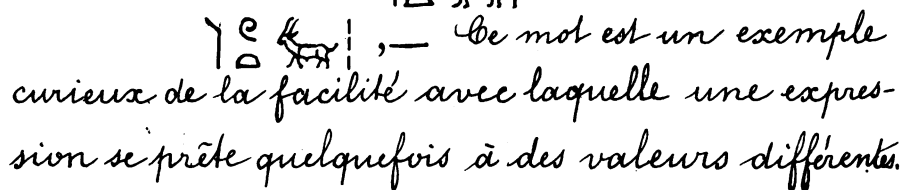 , — Ce mot est un exemple
curieux de la facilité avec laquelle une expres-
sion se prête quelquefois à des valeurs différentes.